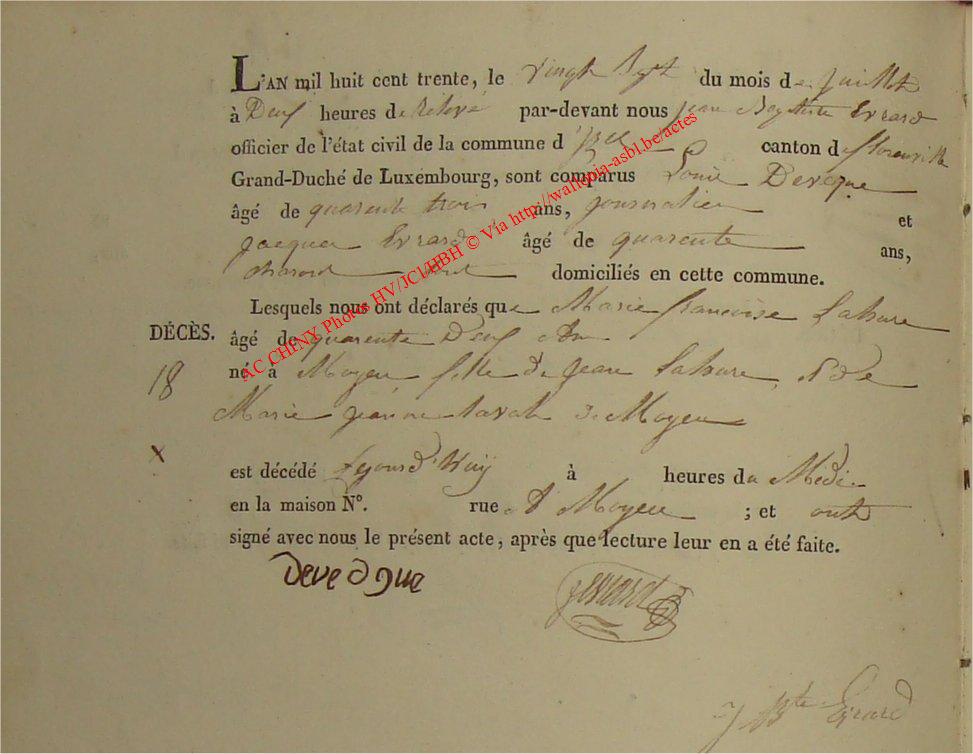 L'AN mil huit cent trente, le vingt Sept du mois de Juillet
à Deux heures de Relevé par-devant nous Jean Baptiste Evrard
officier de l'état civil de la commune d'Izel canton de florenville
Grand-Duché de Luxembourg, sont comparus Louis
âgé de quarente trois ans, journalier et
Jacques Evrard âgé de quarente ans,
domiciliés en cette commune.
Lesquels nous ont déclarés que Marie françoise Lahure
DÉCÈS. âgé de quarente Deux An
18 né à Moyen fille de Jean Lahure, & de
Marie jeanne de Moyen
X
est décédé Lejourd'Huÿ à heures du Medi
en la maison N°. rue d Moyen ; et ont
signé avec nous le présent acte, après que lecture leur en a été faite.
jevrard
J Bte Evrard
AC CHINY Photos HV/JC1/HBH © Via http://wallonia-asbl.be/actes